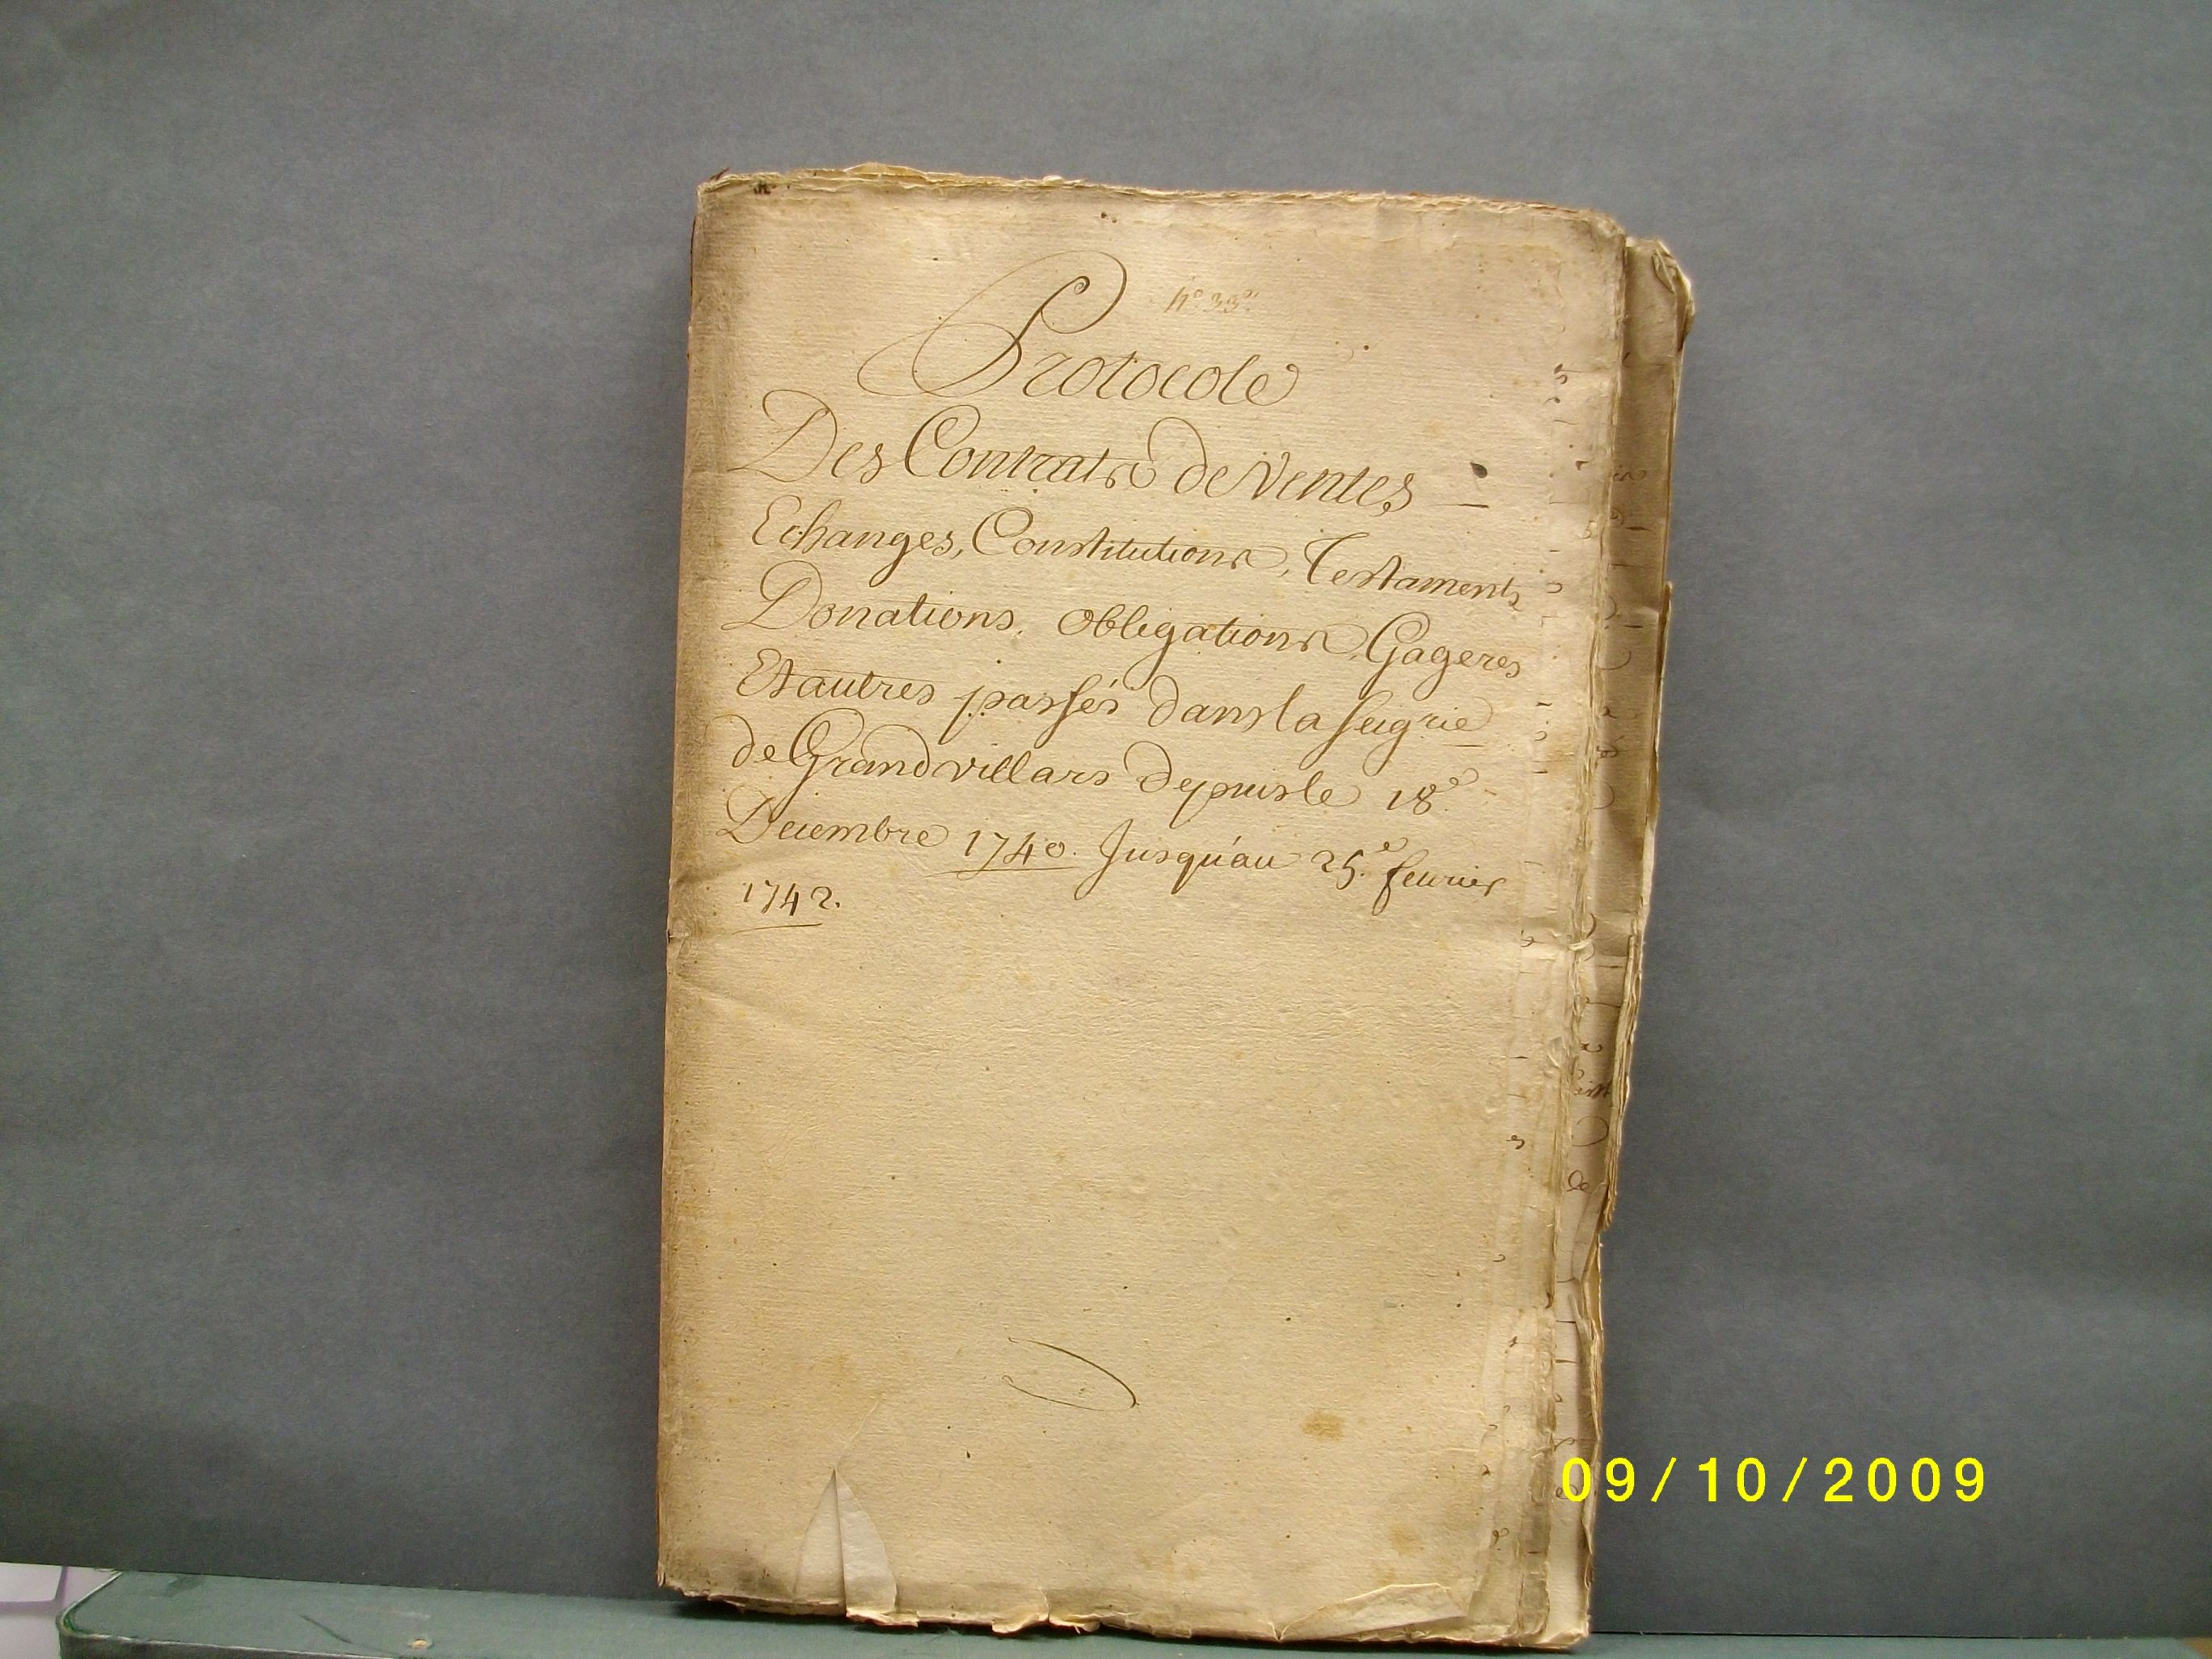 N.° 33.°
Protocole
Des Contrats de Ventes —
Echanges, Constitutions, Testaments
Donations, obligations, Gageres
Et autres passés dans la seigrie
de Grandvillars depuis le 18.e
Decembre 1740. Jusqu'au 25.e feurier
1742.
09/10/2009